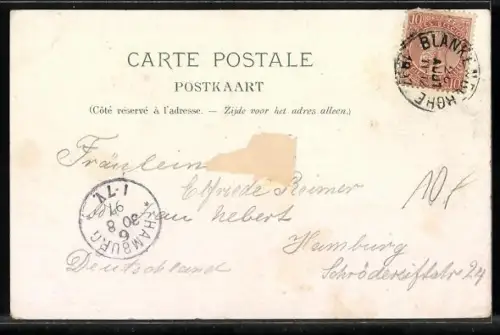 CARTE POSTALE
POSTKAART
(Côté réservé à l'adresse. — Zijde voor het adres alleen.)
10
10
BLANKENBERGHE
AOUT
Fräulein
Elfriede Reimer
Frau Nebert
Hamburg
Schröderstiftstr 24
Deutschland
HAMBURG
6
30 8
97
1-7V.